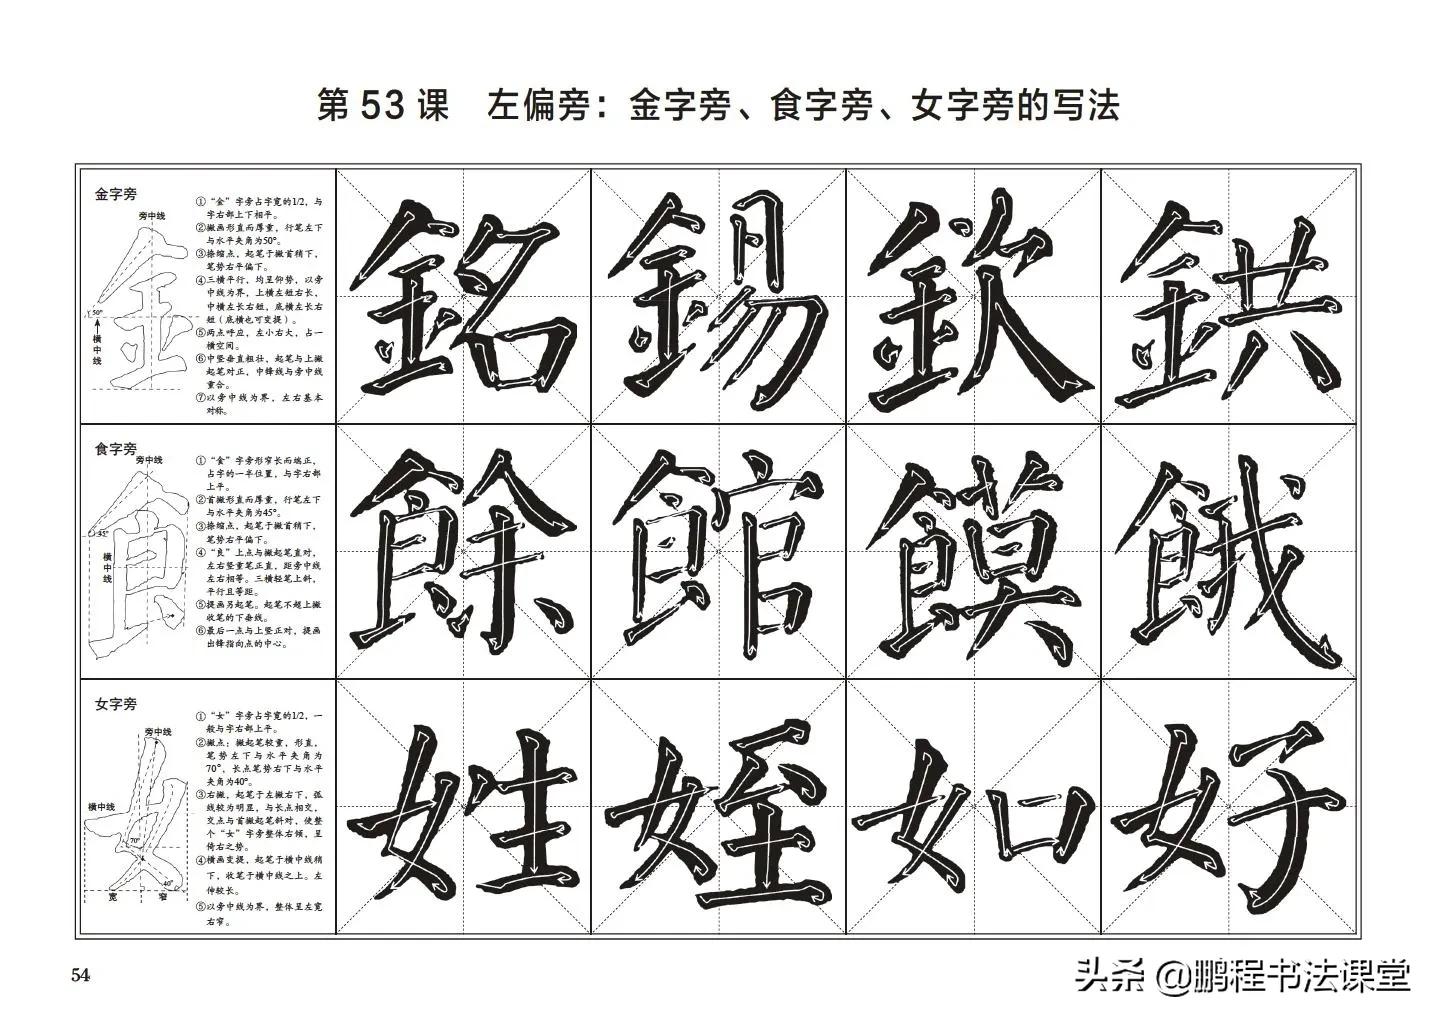 第 53 课 左偏旁：金字旁、食字旁、女字旁的写法
金字旁
旁中线
50°
横中线
①“金”字旁占字宽的1/2，与
字右部上下相平。
②撇画形直而厚重，行笔左下
与水平夹角为50°。
③捺缩点，起笔于撇首稍下，
笔势右平偏下。
④三横平行，均呈仰势，以旁
中线为界，上横左短右长，
中横左长右短，底横左长右
短（底横也可变提）。
⑤两点呼应，左小右大，占一
横空间。
⑥中竖垂直粗壮，起笔与上撇
起笔对正，中锋线与旁中线
重合。
⑦以旁中线为界，左右基本
对称。
銘 錫 欽 鉷
食字旁
旁中线
45°
横中线
①“食”字旁形窄长而端正，
占字的一半位置，与字右部
上平。
②首撇形直而厚重，行笔左下
与水平夹角为45°。
③捺缩点，起笔于撇首稍下，
笔势右平偏下。
④“良”上点与撇起笔直对，
左右竖重笔正直，距旁中线
左右相等。三横轻笔上斜，
平行且等距。
⑤提画另起笔。起笔不超上撇
收笔的下垂线。
⑥最后一点与上竖正对，提画
出锋指向点的中心。
餘 館 饃 餓
女字旁
旁中线
横中线
70°
40°
宽 窄
①“女”字旁占字宽的1/2，一
般与字右部上平。
②撇点：撇起笔较重，形直，
笔势左下与水平夹角为
70°，长点笔势右下与水平
夹角为40°。
③右撇，起笔于左撇右下，弧
线较为明显，与长点相交，
交点与首撇起笔斜对，使整
个“女”字旁整体右倾，呈
倚右之势。
④横画变提，起笔于横中线稍
下，收笔于横中线之上。左
伸较长。
⑤以旁中线为界，整体呈左宽
右窄。
姓 姪 如 好
54
头条 @鹏程书法课堂